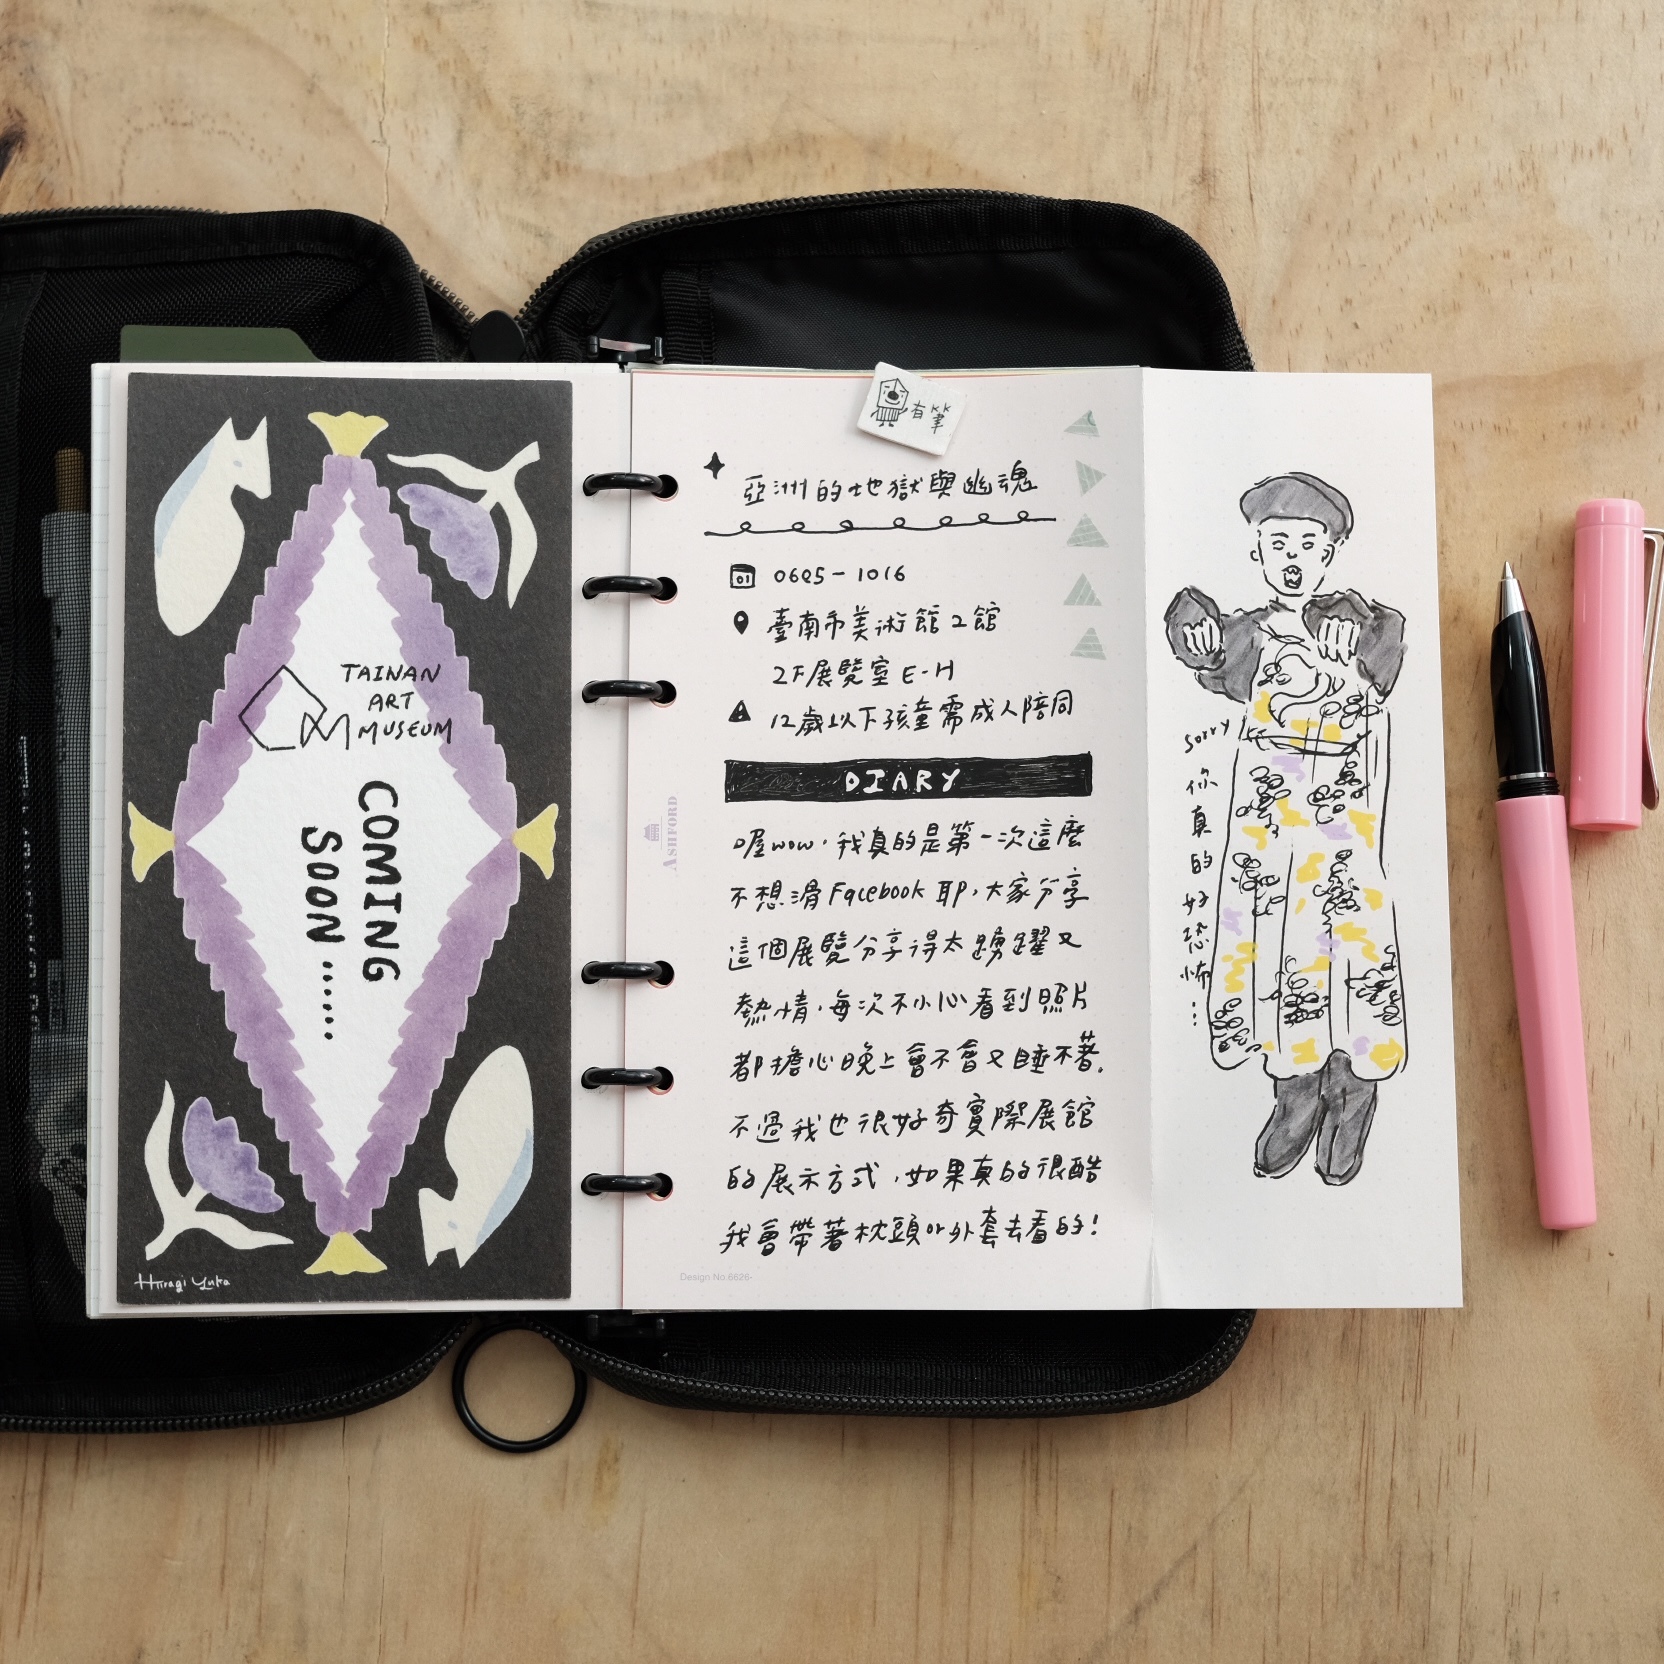 TAINAN
ART
MUSEUM
COMING
SOON ......
Hiiragi Yuka
有筆
亞洲的地獄與幽魂
01
0625-1016
臺南市美術館2館
2F展覽室E-H
12歲以下孩童需成人陪同
DIARY
喔wow，我真的是第一次這麼
不想滑Facebook耶，大家分享
這個展覽分享得太踴躍又
熱情，每次不小心看到照片
都擔心晚上會不會又睡不著.
不過我也很好奇實際展館
的展示方式，如果真的很酷
我會帶著枕頭or外套去看的！
ASHFORD
Design No.6626-
sorry
你真的好恐怖...